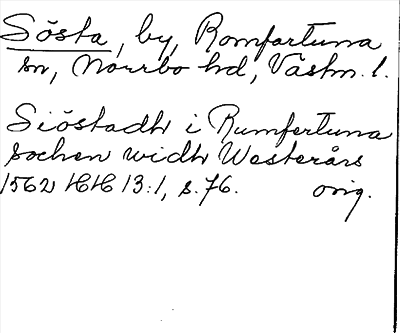 Sösta, by, Romfartuna
sn, Norrbo hd, Västm. l.
Siöstadh i Rumfertuna
sochen widh Westerårs
1562 HH 13:1, s. 76. orig.